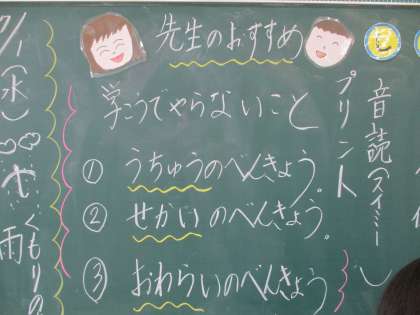 先生のおすすめ
学こうでやらないこと
① うちゅうのべんきょう。
② せかいのべんきょう。
③ おわらいのべんきょう
プリント
音読(スイミー
1(水)
くもりの
雨